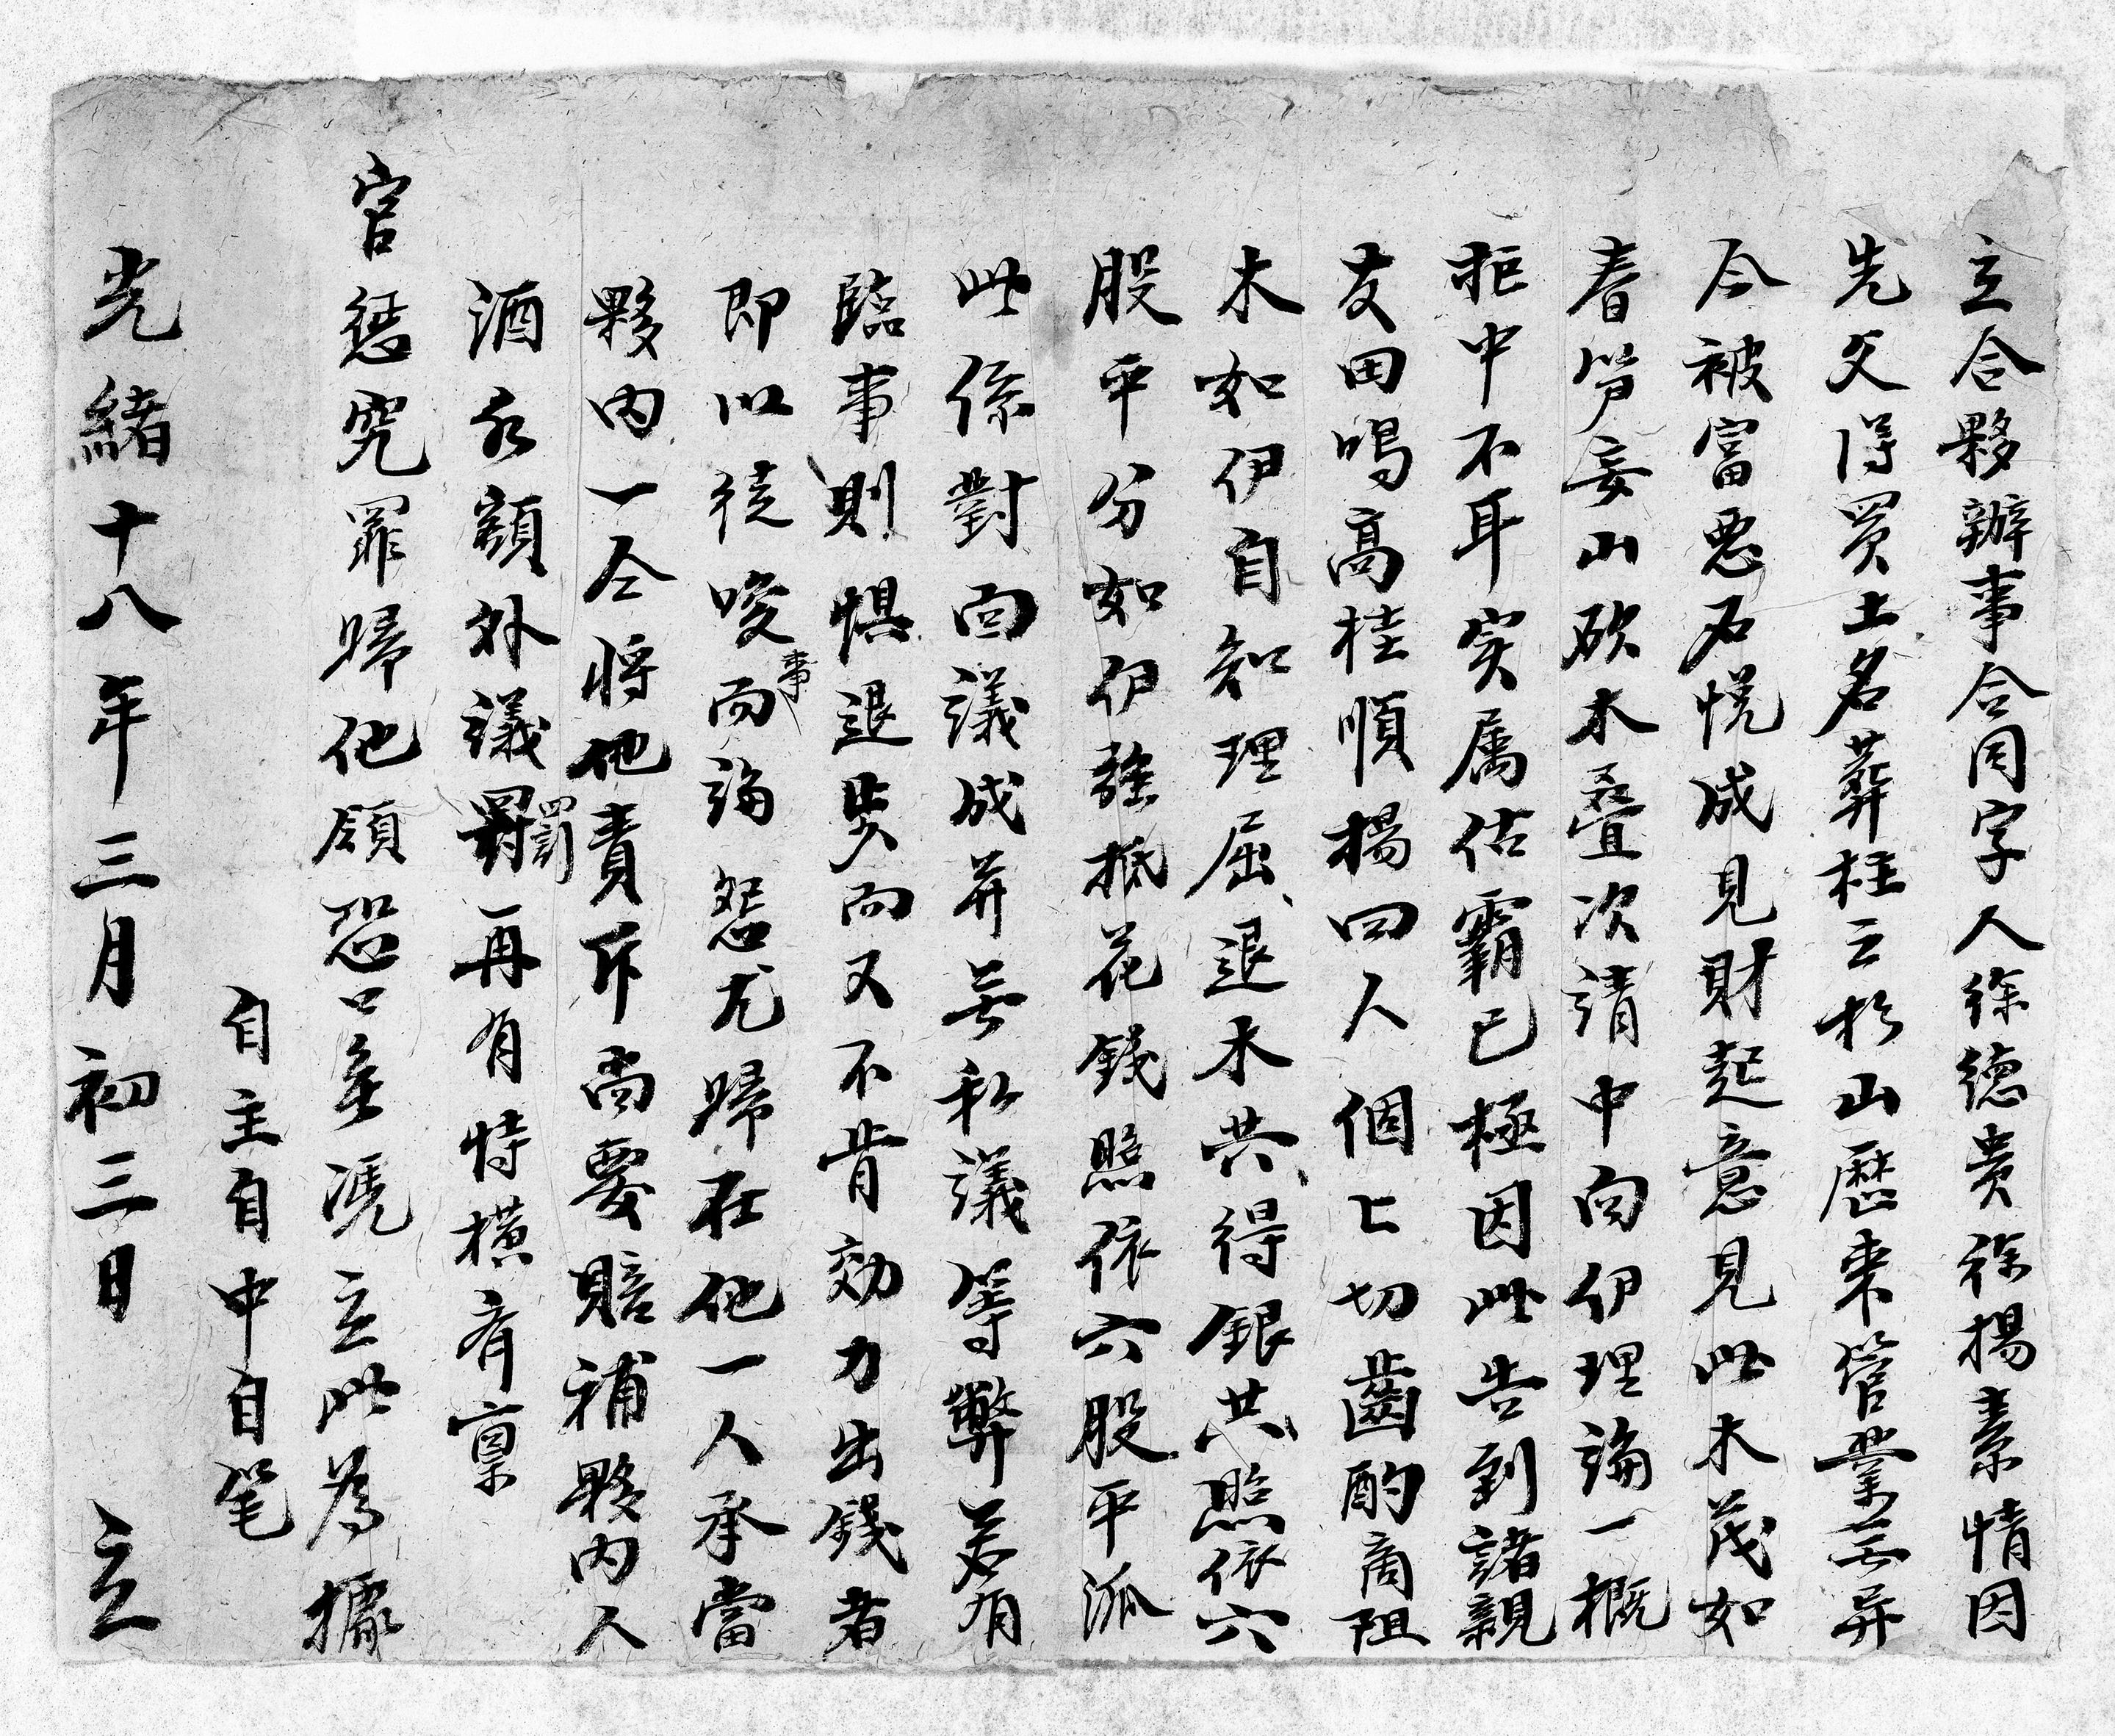 立合夥辦事合同字人徐德贵徐楊素情因
先父得買土名葬柱云杉山歷来管業無异
今被富惡石悦成見財起意見此木茂如
春笋妄山砍木叠次請中向伊理論一概
拒中不耳实属估霸已極因此告到諸親
友田鳴高桂順楊四人個匕切齒酌商阻
木如伊自知理屈退木共得銀共照依六
股平分如伊强抵花錢照依六股平派
此係對面議成並無私議等弊若有
臨事則惧退步而又不肯効力出錢者
即以徒唆事而論怨尤歸在他一人承當
夥内一仝将他責斥尚要賠補夥内人
酒水額外議罰再有恃横肏稟
官懲究罪歸他領恐口無凴立此為據
自主自中自笔
光緒十八年三月初三日 立